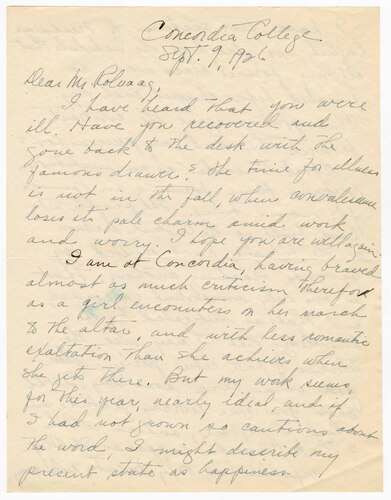 Concordia College
Sept. 9, 1926
Dear Mr. Rolvaag,
I have heard that you were
ill. Have you recovered and
gone back to the desk with the
famous drawer? The time for illness
is not in the fall, when convalescence
loses its pale charm amid work
and worry. I hope you are well again.
I am at Concordia, having braved
almost as much criticism therefor
as a girl encounters on her march
to the altar, and with less romantic
exaltation than she achieves when
she gets there. But my work seems,
for this year, nearly ideal, and if
I had not grown so cautious about
the word, I might describe my
present state as happiness.